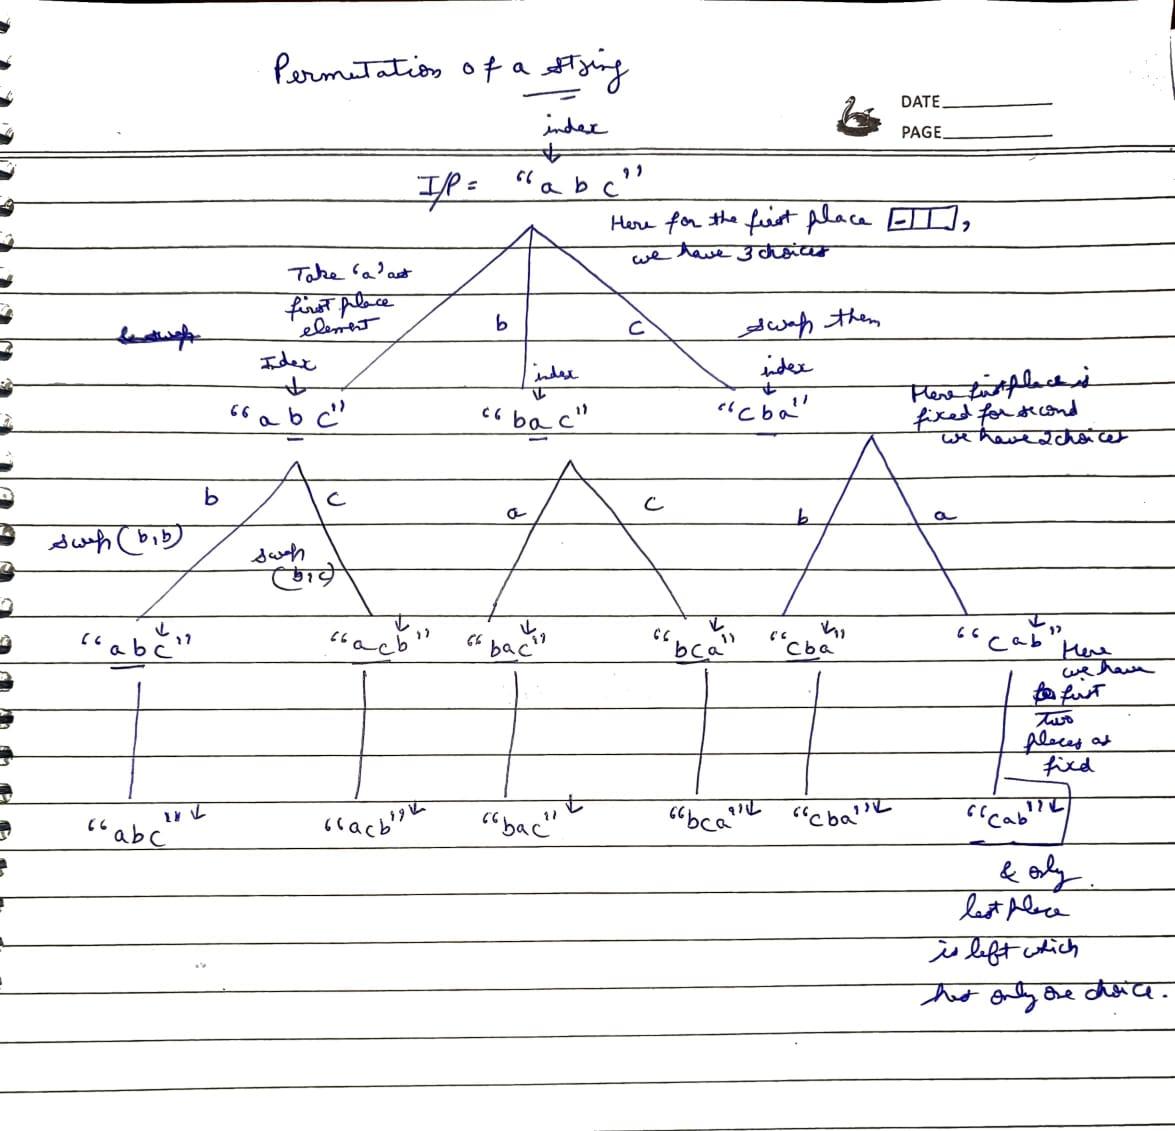 Permutation of a string
DATE
PAGE
index
I/P = "a b c"
Here for the first place
we have 3 choices
Take 'a' as
first place
element
b
c
swap them
Index
index
index
"a b c"
"b a c"
"c b a"
Here first place is
fixed for second
we have 2 choices
b
c
a
c
b
a
swap (b,b)
swap
(b,c)
"abc"
"acb"
"bac"
"bca"
"cba"
"cab"
Here
we have
first
two
places as
fixd
"abc"
"acb"
"bac"
"bca"
"cba"
"cab"
& only
last place
is left which
has only one choice.